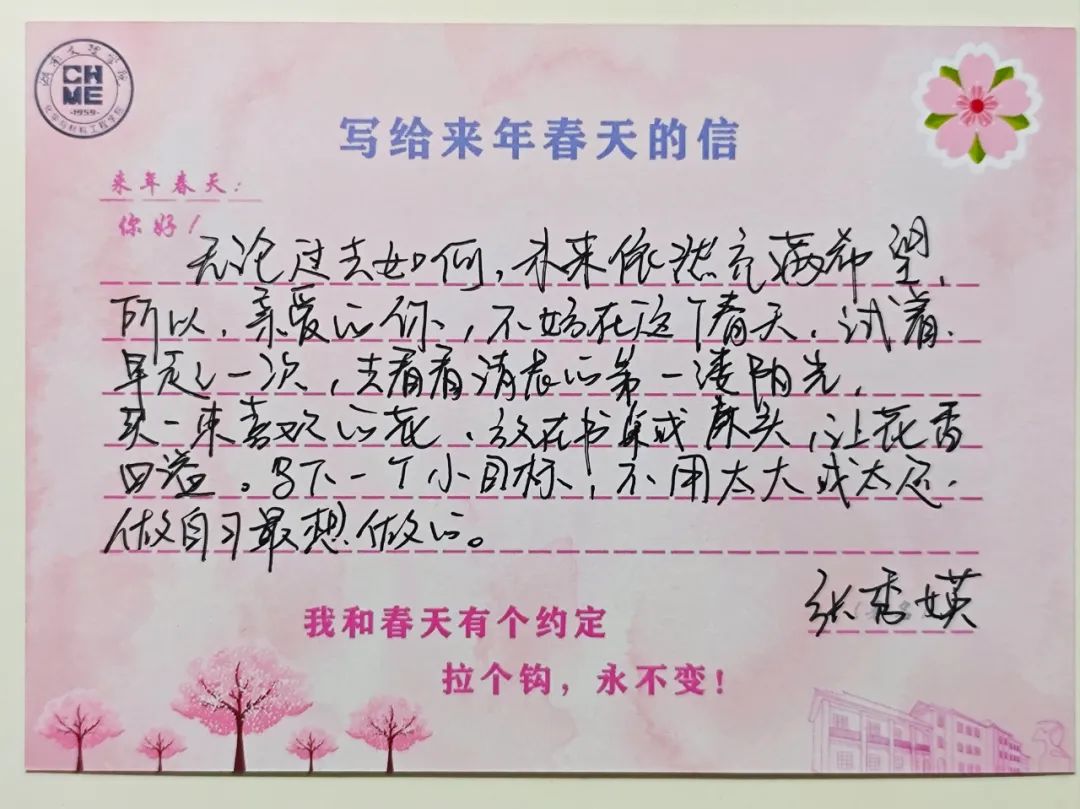 湖南文理学院
CH
ME
-1959-
化学与材料工程学院
写给来年春天的信
来年春天：
你好！
无论过去如何，未来依然充满希望，
所以，亲爱的你，不妨在这个春天，试着
早起一次，去看看清晨的第一缕阳光，
买一束喜欢的花，放在书桌或床头，让花香
四溢。写下一个小目标，不用太大或太远，
做自习最想做的。
张秀媖
我和春天有个约定
拉个钩，永不变！